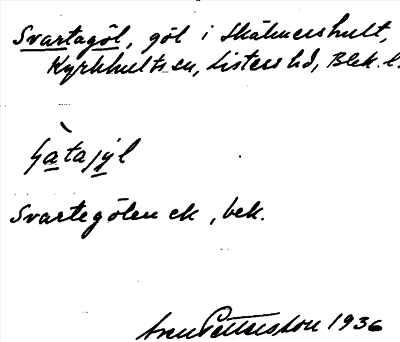 Svartagöl, göl i Skälmershult,
Kyrkhults sn, Listers hd, Blek. l.
gàtajyl
Svartegölen ek, bek.
Sven Pettersson 1936